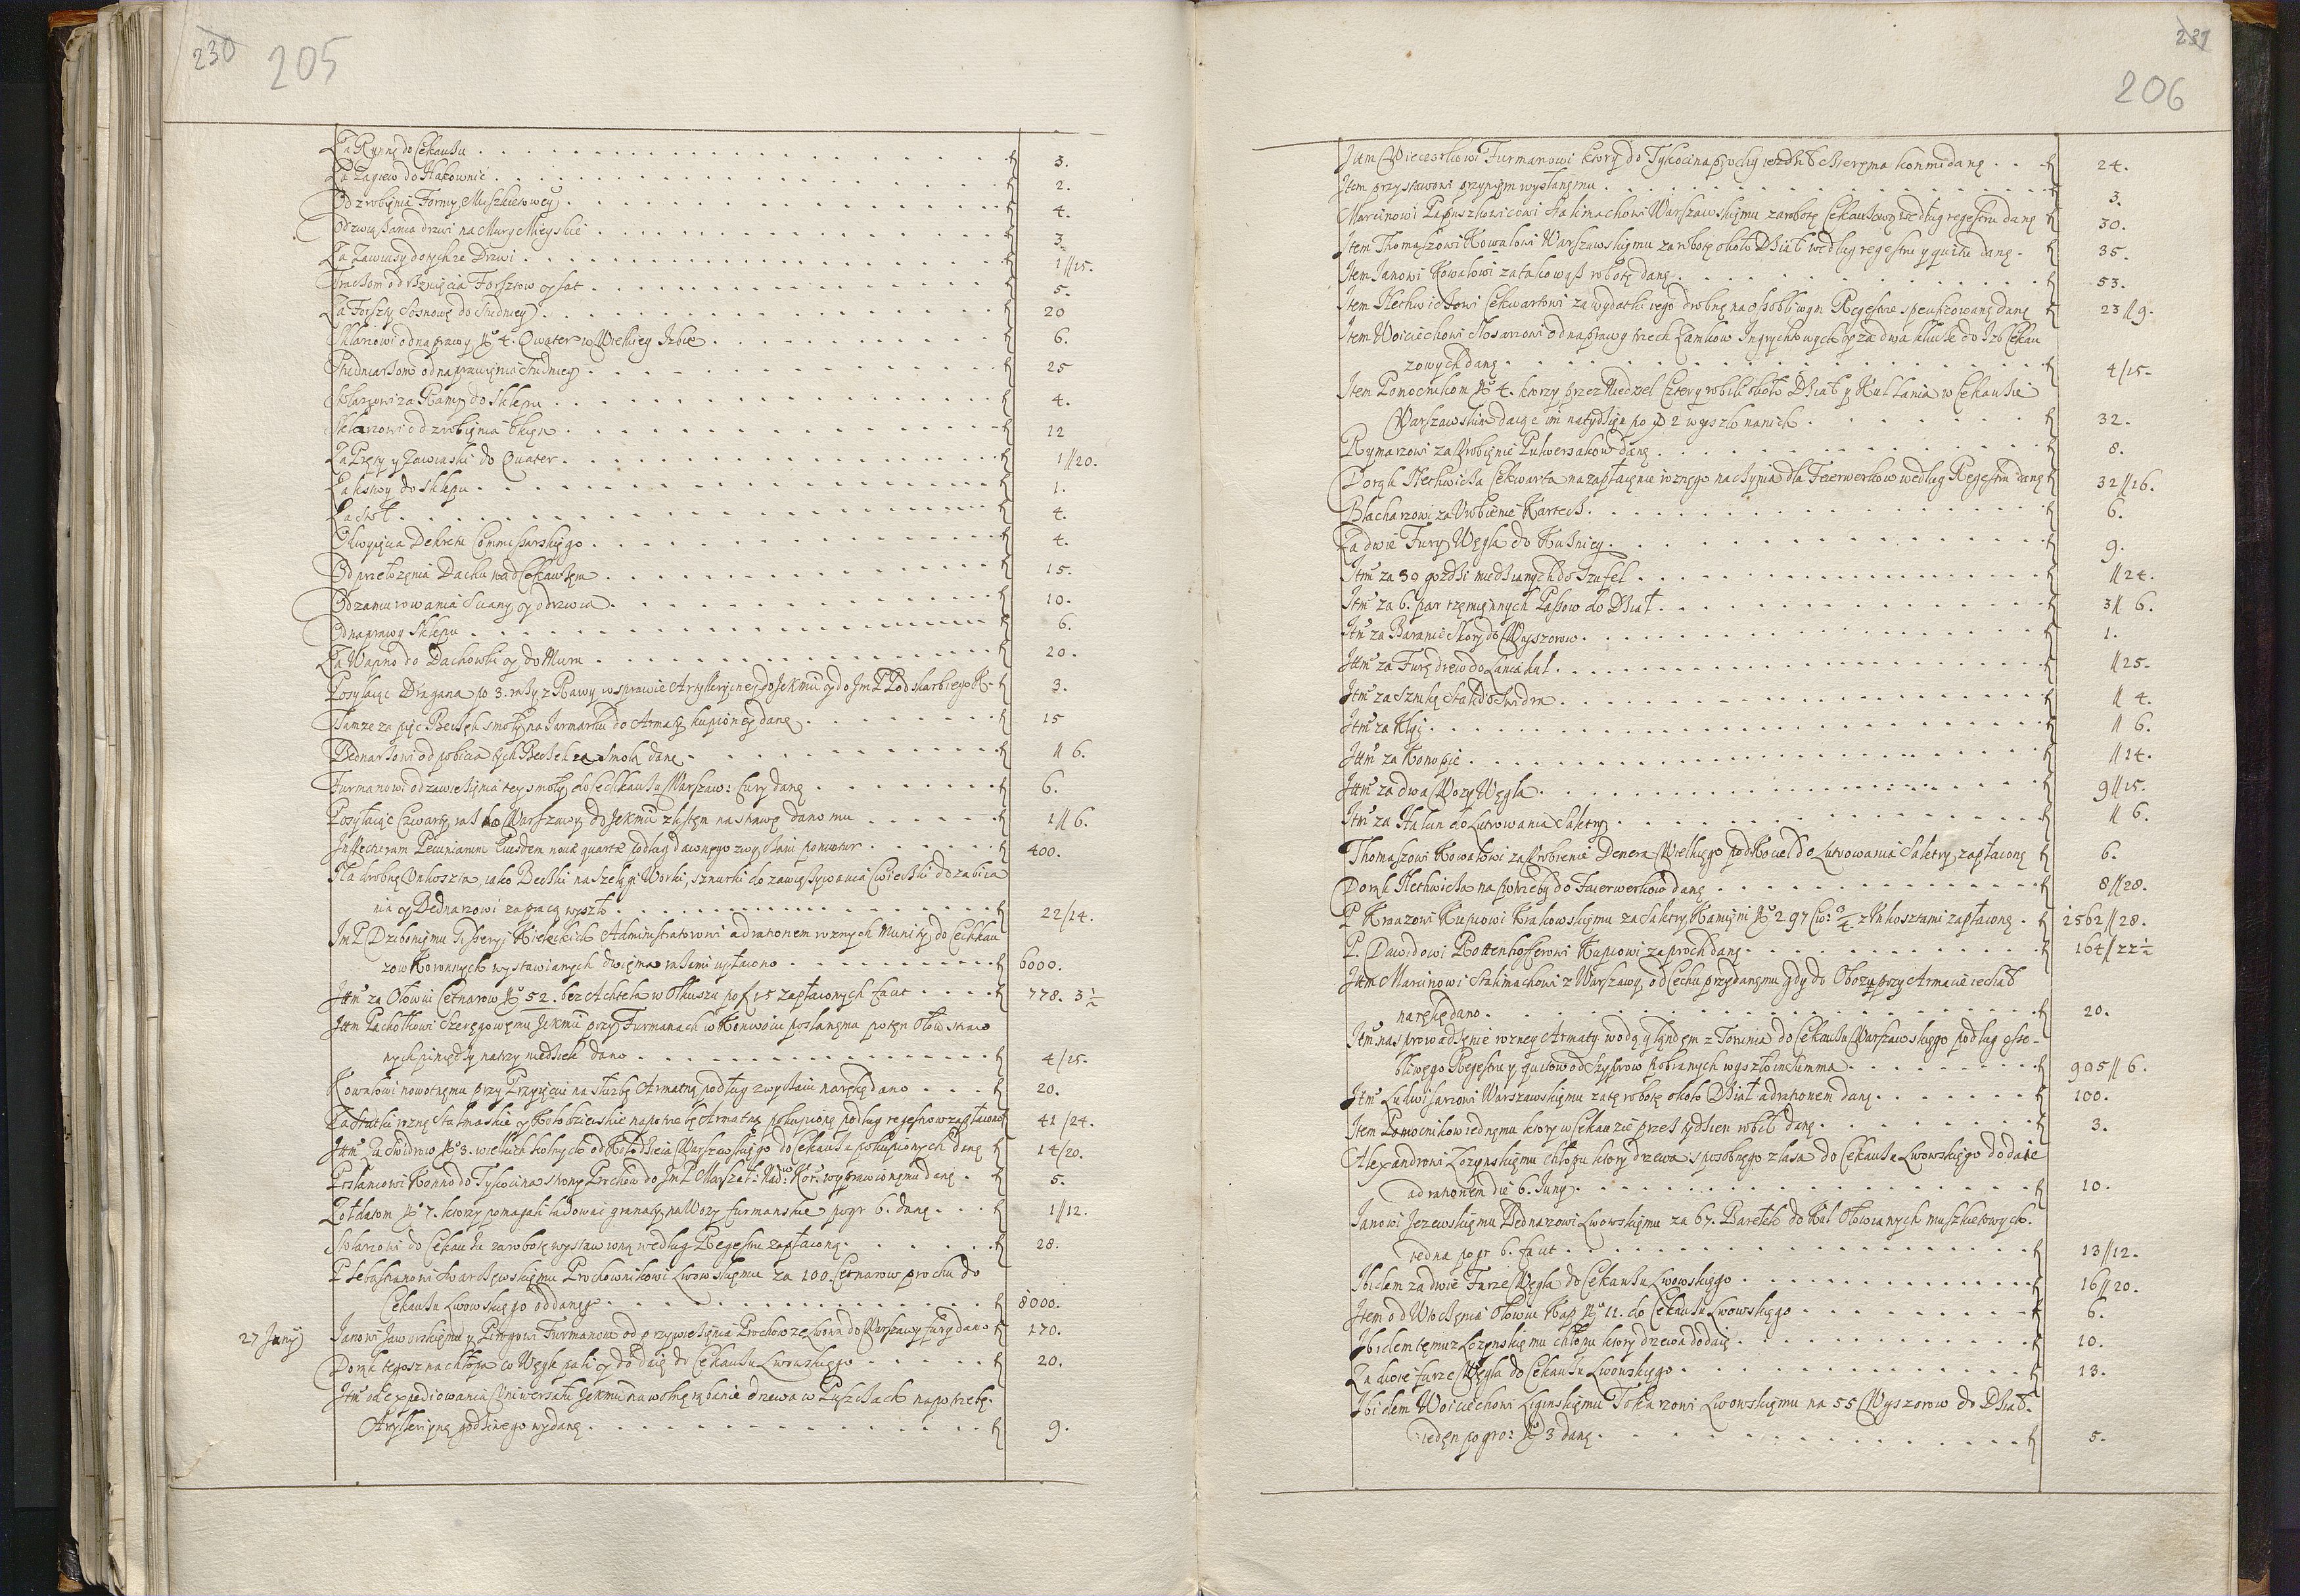 230 205
Za Rynnę do Cekauzu . . . fl 3.
Za Zagiew do Hakownic . . . fl 2.
Od zrobienia Formy Muszkietowey . . . fl 4.
Od zwiąźania drzwi na Mury Mieyskie . . . fl 3.
Za Zawiasy do tychze Drzwi . . . fl 1//15.
Traczom od rznięcia Forsztow y łat . . . fl 5.
Za Forszty Sosnowe do Studniey . . . fl 20
Sklarzowi od naprawy No 4. Quater w Wielkiey Izbie . . . fl 6.
Studniarzom od naprawienia Studniey . . . fl 25
Stolarzowi za Ramy do Sklepu . . . fl 4.
Sklarzowi od zrobienia Okien . . . fl 12
Za Pręty y Zawiaski do Quater . . . fl 1//20.
do Sklepu . . . fl 1.
. . . fl 4.
Od wyięcia Dekretu Commissarskiego . . . fl 4.
Od przełozenia Dachu nad Cekauzem . . . fl 15.
Od zamurowania Sciany y odrzwia . . . fl 10.
Od naprawy Sklepu . . . fl 6.
Za Wapno do Dachowki y do Muru . . . fl 20.
Posyłaiąc Dragana po 3. razy z Rawy w sprawie Artylleryiney do JeKmci y do Jm P Podskarbiego K. fl 3.
Tamze za pięc Beczek smoły na Jarmarku do Armaty kupioney dano . . . fl 15
Bednarzowi od pobicia tych Beczek ze Smołą dano . . . fl // 6.
Furmanowi od zawiezienia tey smoły do Cechkauzu Warszaw: fury dano . . . fl 6.
Posyłaiąc czwarty raz do Warszawy do JeKmci z listem na strawę dano mu . . . fl 1// 6.
pecuniarum Eiusdem novae quartae według dawnego zwyczaiu ponuntur . . . fl 400.
Na drobne Unkoszta, iako Beczki na Szelągi Worki, sznurki do zawięzywania Cwieczki do zabiia
nia y Bednarzowi za pracą wyszło . . . fl 22/14.
Jm P Dzibonijmu Gisseryi Kieleckich Administratorowi ad rationem roznych Municiy do Cechkau
zow Koronnych wystawianych dwiema razami wpłacono . . . fl 6000.
Ittm za Ołowiu Cetnarow No 52. bez Achtela w Olkuszu po f 15 zapłaconych facit . . . fl 778. 3 ½
Ittm Pachołkowi Szeręgowemu JeKmci przy Furmanach w Konwoiu posłanemu po ten Ołow straw
nych pieniędzy na trzy niedziele dano . . . fl 4/15.
Kowalowi nowotnemu przy Przyięciu na słuzbę Armatną podług zwyczaiu na rękę dano . . . fl 20.
Za Statki rozne Stalmaskie y Kołodzieyskie na potrzebę Armatną pokupione podług regestrow zapłacono fl 41/24.
Ittm Za Swidrow No 3. wielkich kolnych od Kołodzieia Warszawskiego do Cekauzu pokupionych dano fl 14/20.
Posłancowi Konno do Tykocina strony Prochow do Jm P Marszał: Nadw: Kor: wyprawionemu dano . fl 5.
Zołdatom No 7. ktorzy pomagali ładowac granaty na Wozy furmanskie po gr 6. dano . . . fl 1//12.
Stolarzowi do Cekauzu za robotę wystawioną według Regestru zapłacono . . . fl 28.
P Sebastianowi Twardzewskiemu Prochownikowi Lwowskiemu za 100. Cetnarow prochu do
Cekauzu Lwowskiego oddanego . . . fl 8000.
27 Junij Janowi Jaworskiemu y Pirogowi Furmanom od przywiezienia Prochow ze Lwowa do Warszawy fury dano fl 170.
Do rąk tegosz na chłopa co Węgle pali y dodaie do Cekauzu Lwowskiego . . . fl 20.
Ittm od expediowania Uniwersału JeKmci na wolne rąbanie drzewa w Puszczach na potrzebę
Artylleriyną godzinego wydane . . . fl 9.
231 206
Item Wieczorkowi Furmanowi ktory do Tykocina po Prochy iezdził czterema konmi dano . . . fl 24.
Item przystawowi przy nim wysłanemu . . . fl 3.
Marcinowi Papuszkowicowi Stalmachowi Warszawskiemu za robotę Cekauzową według regestru dano fl 30.
Item Thomaszowi Kowalowi Warszawskiemu za robotę około Dział według regestru y quitu dano . fl 35.
Item Janowi Kowalowi za takowąz robotę dano . . . fl 53.
Item Hechwichowi Cekwartowi za wydatki iego drobne na osobliwym Regestrze specificowane dano fl 23//9.
Item Woiciechowi Slosarzowi od naprawy trzech Zamkow Ingrychtowych y za dwa klucze do Izb Cekau
zowych dano . . . fl 4/15.
Item Pomocnikom No 4. ktorzy przez Niedziel Cztery robili około Dział y Kul Lania w Cekauzie
Warszawskim daiąc im na tydzien po fl 2 wyszło na nich . . . fl 32.
Rymarzowi za Urobienie Pulwersakow dano . . . fl 8.
Do rąk Hechwicha Cekwarta na zapłacenie roznego naczynia dla Feierwerkow według Regestru dano fl 32//16.
Blacharzowi za Urobienie Kartecz . . . fl 6.
Za dwie Fury Węgla do Kuzniey . . . fl 9.
Ittm za 30 gozdzi miedzianych do Szufel . . . fl //24.
Ittm za 6. par rzemiennych Passow do Dział . . . fl 3// 6.
Ittm za Baranie Skory do Wyszorow . . . fl 1.
Ittm za Furę drew do Lania kul . . . fl //25.
Ittm za Sztukę Stali do Swidra . . . fl // 4.
Ittm za Kliy . . . fl // 6.
Ittm za Konopie . . . fl //14.
Ittm za dwa Wozy Węgla . . . fl 9//15.
Ittm za Hałun do Lutrowania Saletry . . . fl // 6.
Thomaszowi Kowalowi za Urobienie Denera Wielkiego pod Kocieł do Lutrowania Saletry zapłacono fl 6.
Do rąk Hechwicha na potrzeby do Feierwerkow dano . . . fl 8//28.
P Krauzowi Kupcowi Krakowskiemu za Saletry Kamieni No 297 ¾ z Unkosztami zapłacono . fl 2562//28.
P. Dawidowi Rottenhofferowi Kupcowi za proch dano . . . fl 164//22 ½
Ittm Marcinowi Stalmachowi z Warszawy od Cechu przydanemu gdy do Obozu przy Armacie iechał
na rękę dano . . . fl 20.
Ittm na sprowadzenie rozney Armaty wodą y lądem z Torunia do Cekauzu Warszawskiego podług oso-
bliwego Regestru y quitow od Szyprow pobranych wyszło in Summa . . . fl 905// 6.
Ittm Ludwisarzowi Warszawskiemu za tę robotę około Dział ad rationem dano . . . fl 100.
Item Pomocnikow iednemu ktory w Cekauzie przez tydzien robił dano . . . fl 3.
Alexandrowi Łozynskiemu chłopu ktory drzewa sposobnego z lasa do Cekauzu Lwowskiego dodaie
ad rationem die 6. Juny . . . fl 10.
Janowi Jezewskiemu Bednarzowi Lwowskiemu za 67. Baryłek do Kul Ołowianych muszkietowych.
iedna po gr 6. facit . . . fl 13//12.
Ibidem za dwie Furze Węgla do Cekauzu Lwowskiego . . . fl 16//20.
Item od Włoczenia Ołowiu Kap No 11. do Cekauzu Lwowskiego . . . fl 6.
Ibidem temuz Łozynskiemu chłopu ktory drzewa dodaie . . . fl 10.
Za dwie furze Węgla do Cekauzu Lwowskiego . . . fl 13.
Ibidem Woiciechowi Liginskiemu Tokarzowi Lwowskiemu na 55 Wyszorow do Dział.
ieden po gro: No 3 dano . . . fl 5.